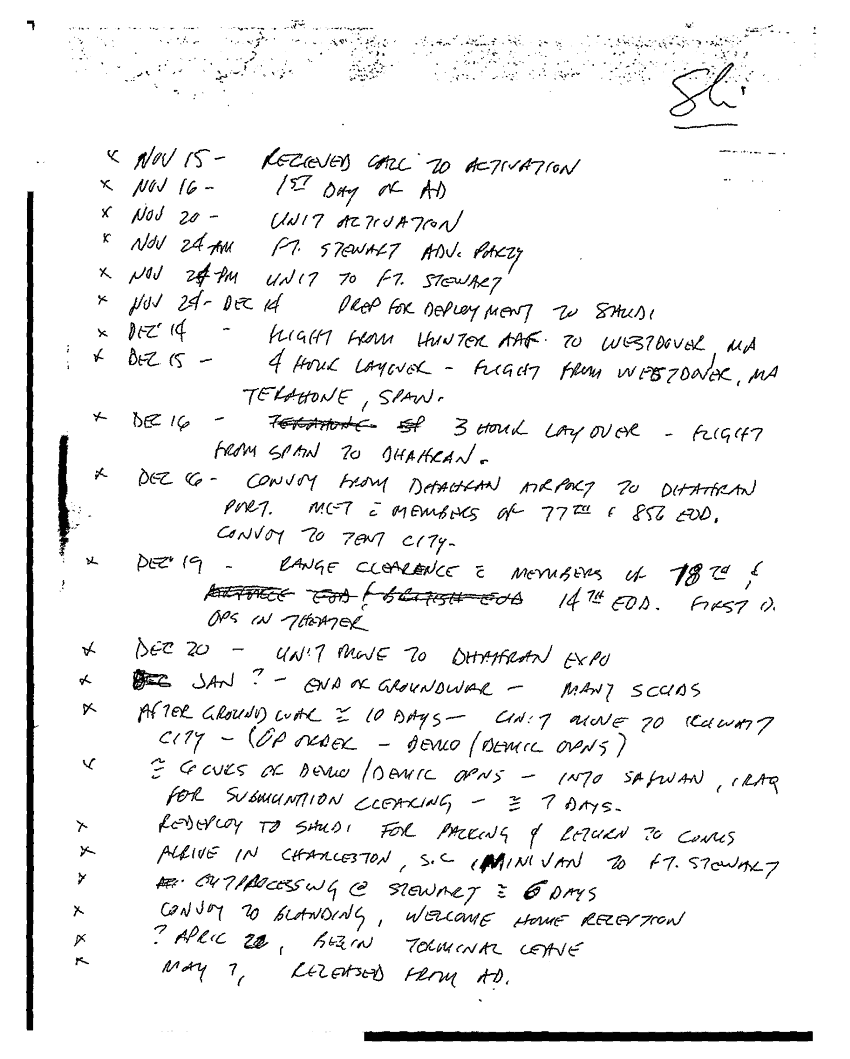 x NOV 15 - RECIEVED CALL TO ACTIVATION
x NOV 16 - 1ST DAY OF AD
x NOV 20 - UNIT ACTIVATION
x NOV 24 AM FT. STEWART ADV. PARTY
x NOV 24 PM UNIT TO FT. STEWART
x NOV 24 - DEC 14 PREP FOR DEPLOYMENT TO SAUDI
x DEC 14 - FLIGHT FROM HUNTER AAF. TO WESTOVER, MA
x DEC 15 - 4 HOUR LAYOVER - FLIGHT FROM WESTOVER, MA
TERAHONE, SPAIN.
x DEC 16 - 3 HOUR LAYOVER - FLIGHT
FROM SPAIN TO DHAHRAN.
x DEC 16 - CONVOY FROM DHAHRAN AIRPORT TO DHAHRAN
PORT. MET c̄ MEMBERS OF 77TH & 856 EOD.
CONVOY TO TENT CITY.
x DEC 19 - RANGE CLEARANCE c̄ MEMBERS OF 18TH &
14TH EOD. FIRST
OPS IN THEATER
x DEC 20 - UNIT MOVE TO DHAHRAN EXPO
x JAN ? - END OF GROUNDWAR - MANY SCUDS
x AFTER GROUND WAR ≅ 10 DAYS - UNIT MOVE TO KUWAIT
CITY - (OP ORDER - DEMO/DEMIL OPNS)
x ≅ 6 OF DEMO/DEMIL OPNS - INTO SAFWAN, IRAQ
FOR SUBMUNTION CLEARING - ≅ 7 DAYS.
x REDEPLOY TO SAUDI FOR PACKING & RETURN TO CONUS
x ARRIVE IN CHARLESTON, S.C, MINIVAN TO FT. STEWART
x OUTPROCESSING @ STEWART ≅ 6 DAYS
x CONVOY TO BLANDING, WELCOME HOME RECEPTION
x ? APRIL 22, BEGIN TERMINAL LEAVE
x MAY 7, RELEASED FROM AD.